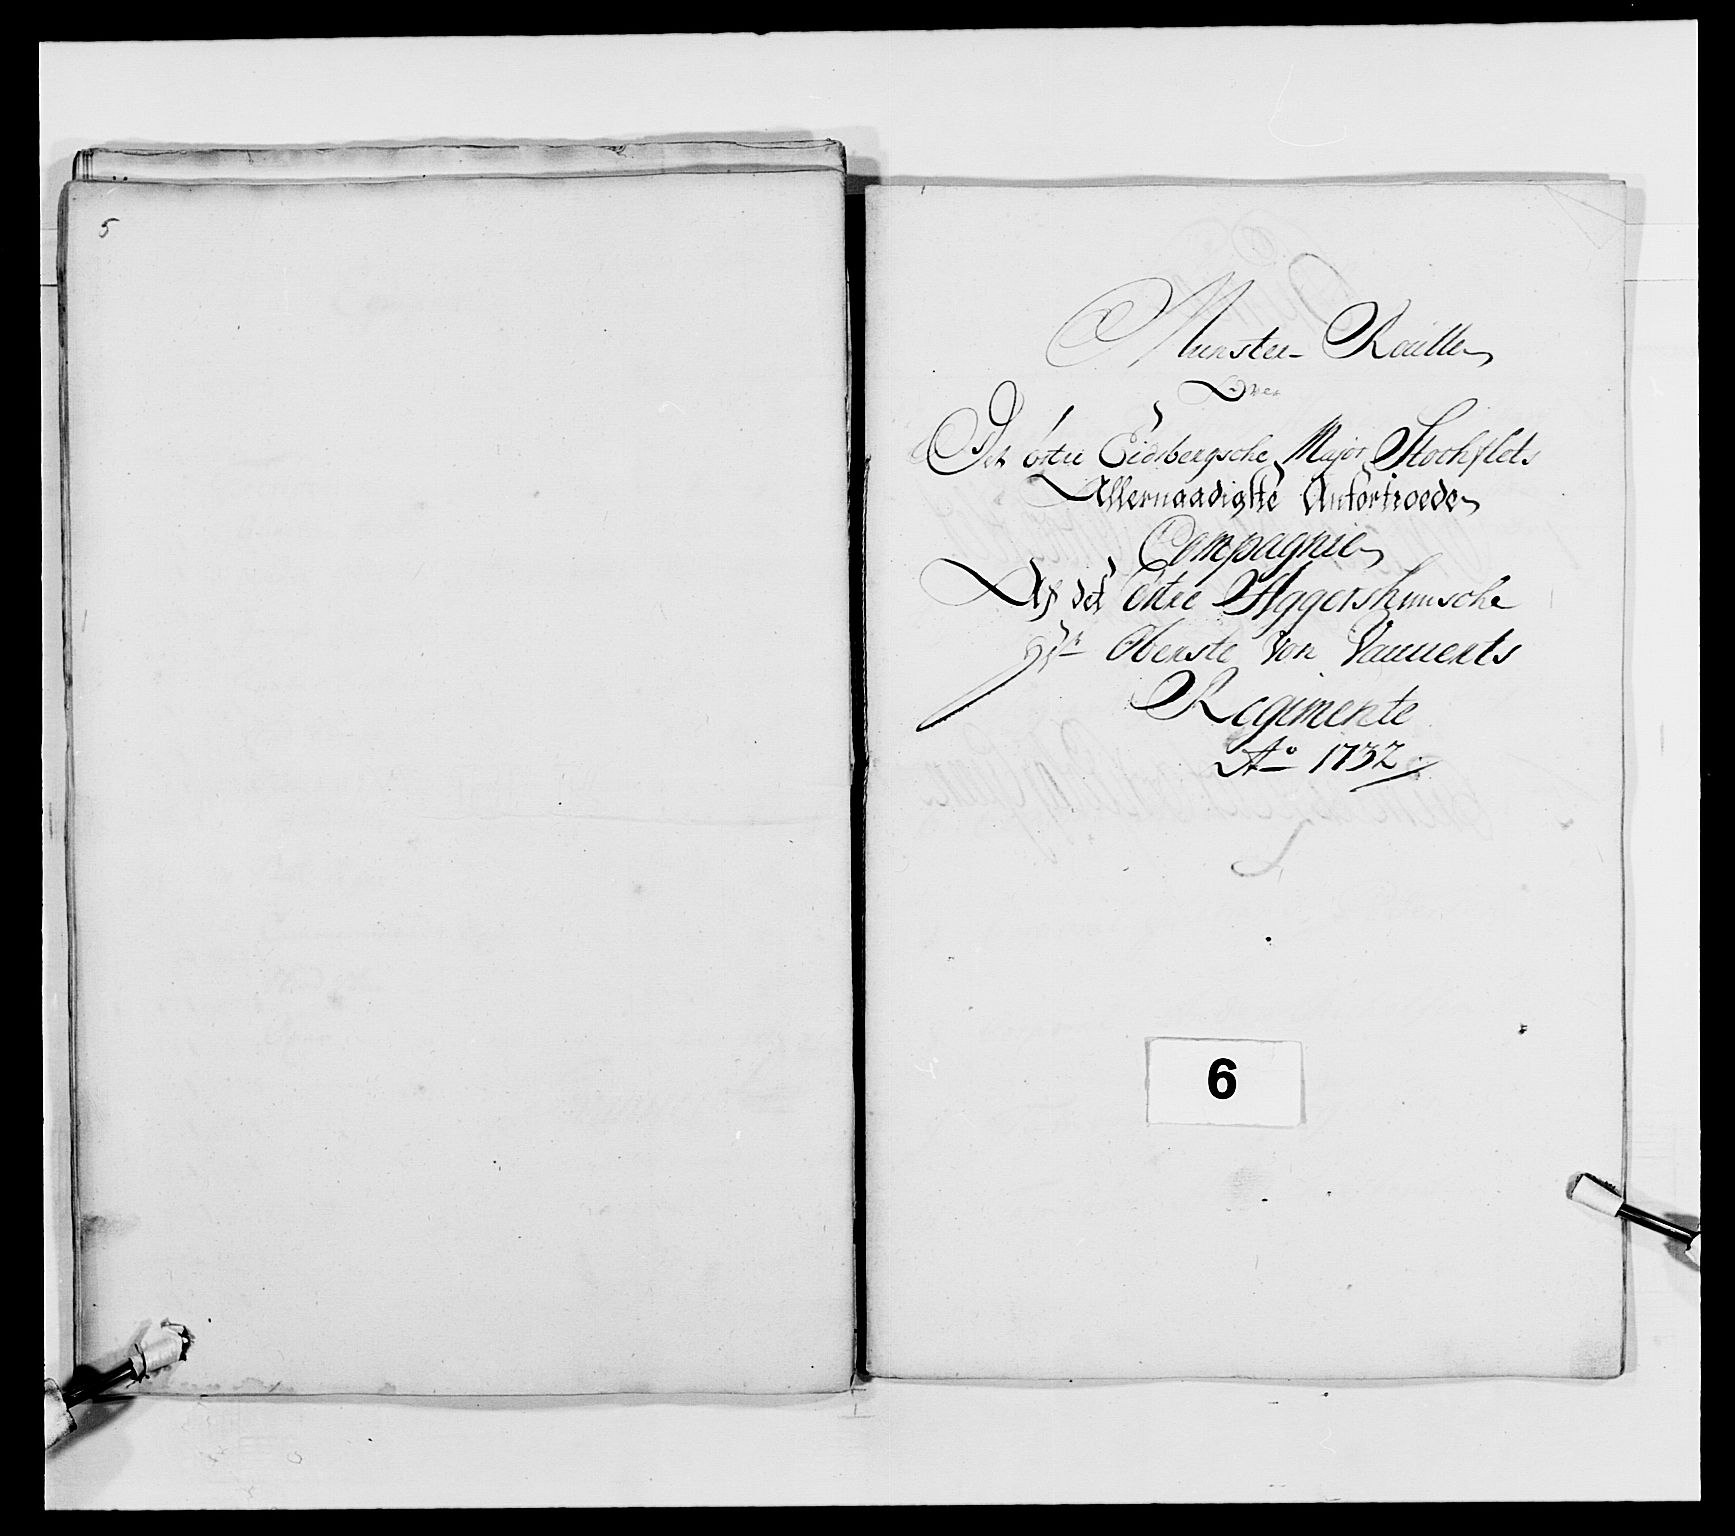 5
Munster Roulle
Over
Det 1ste Eidsbergsche Major Stochflets
Allernaadigste Anfortroede
Compagnie
Af det 1ste Aggershuusche
Hr Oberste Von
Regimente
Ao 1732
6